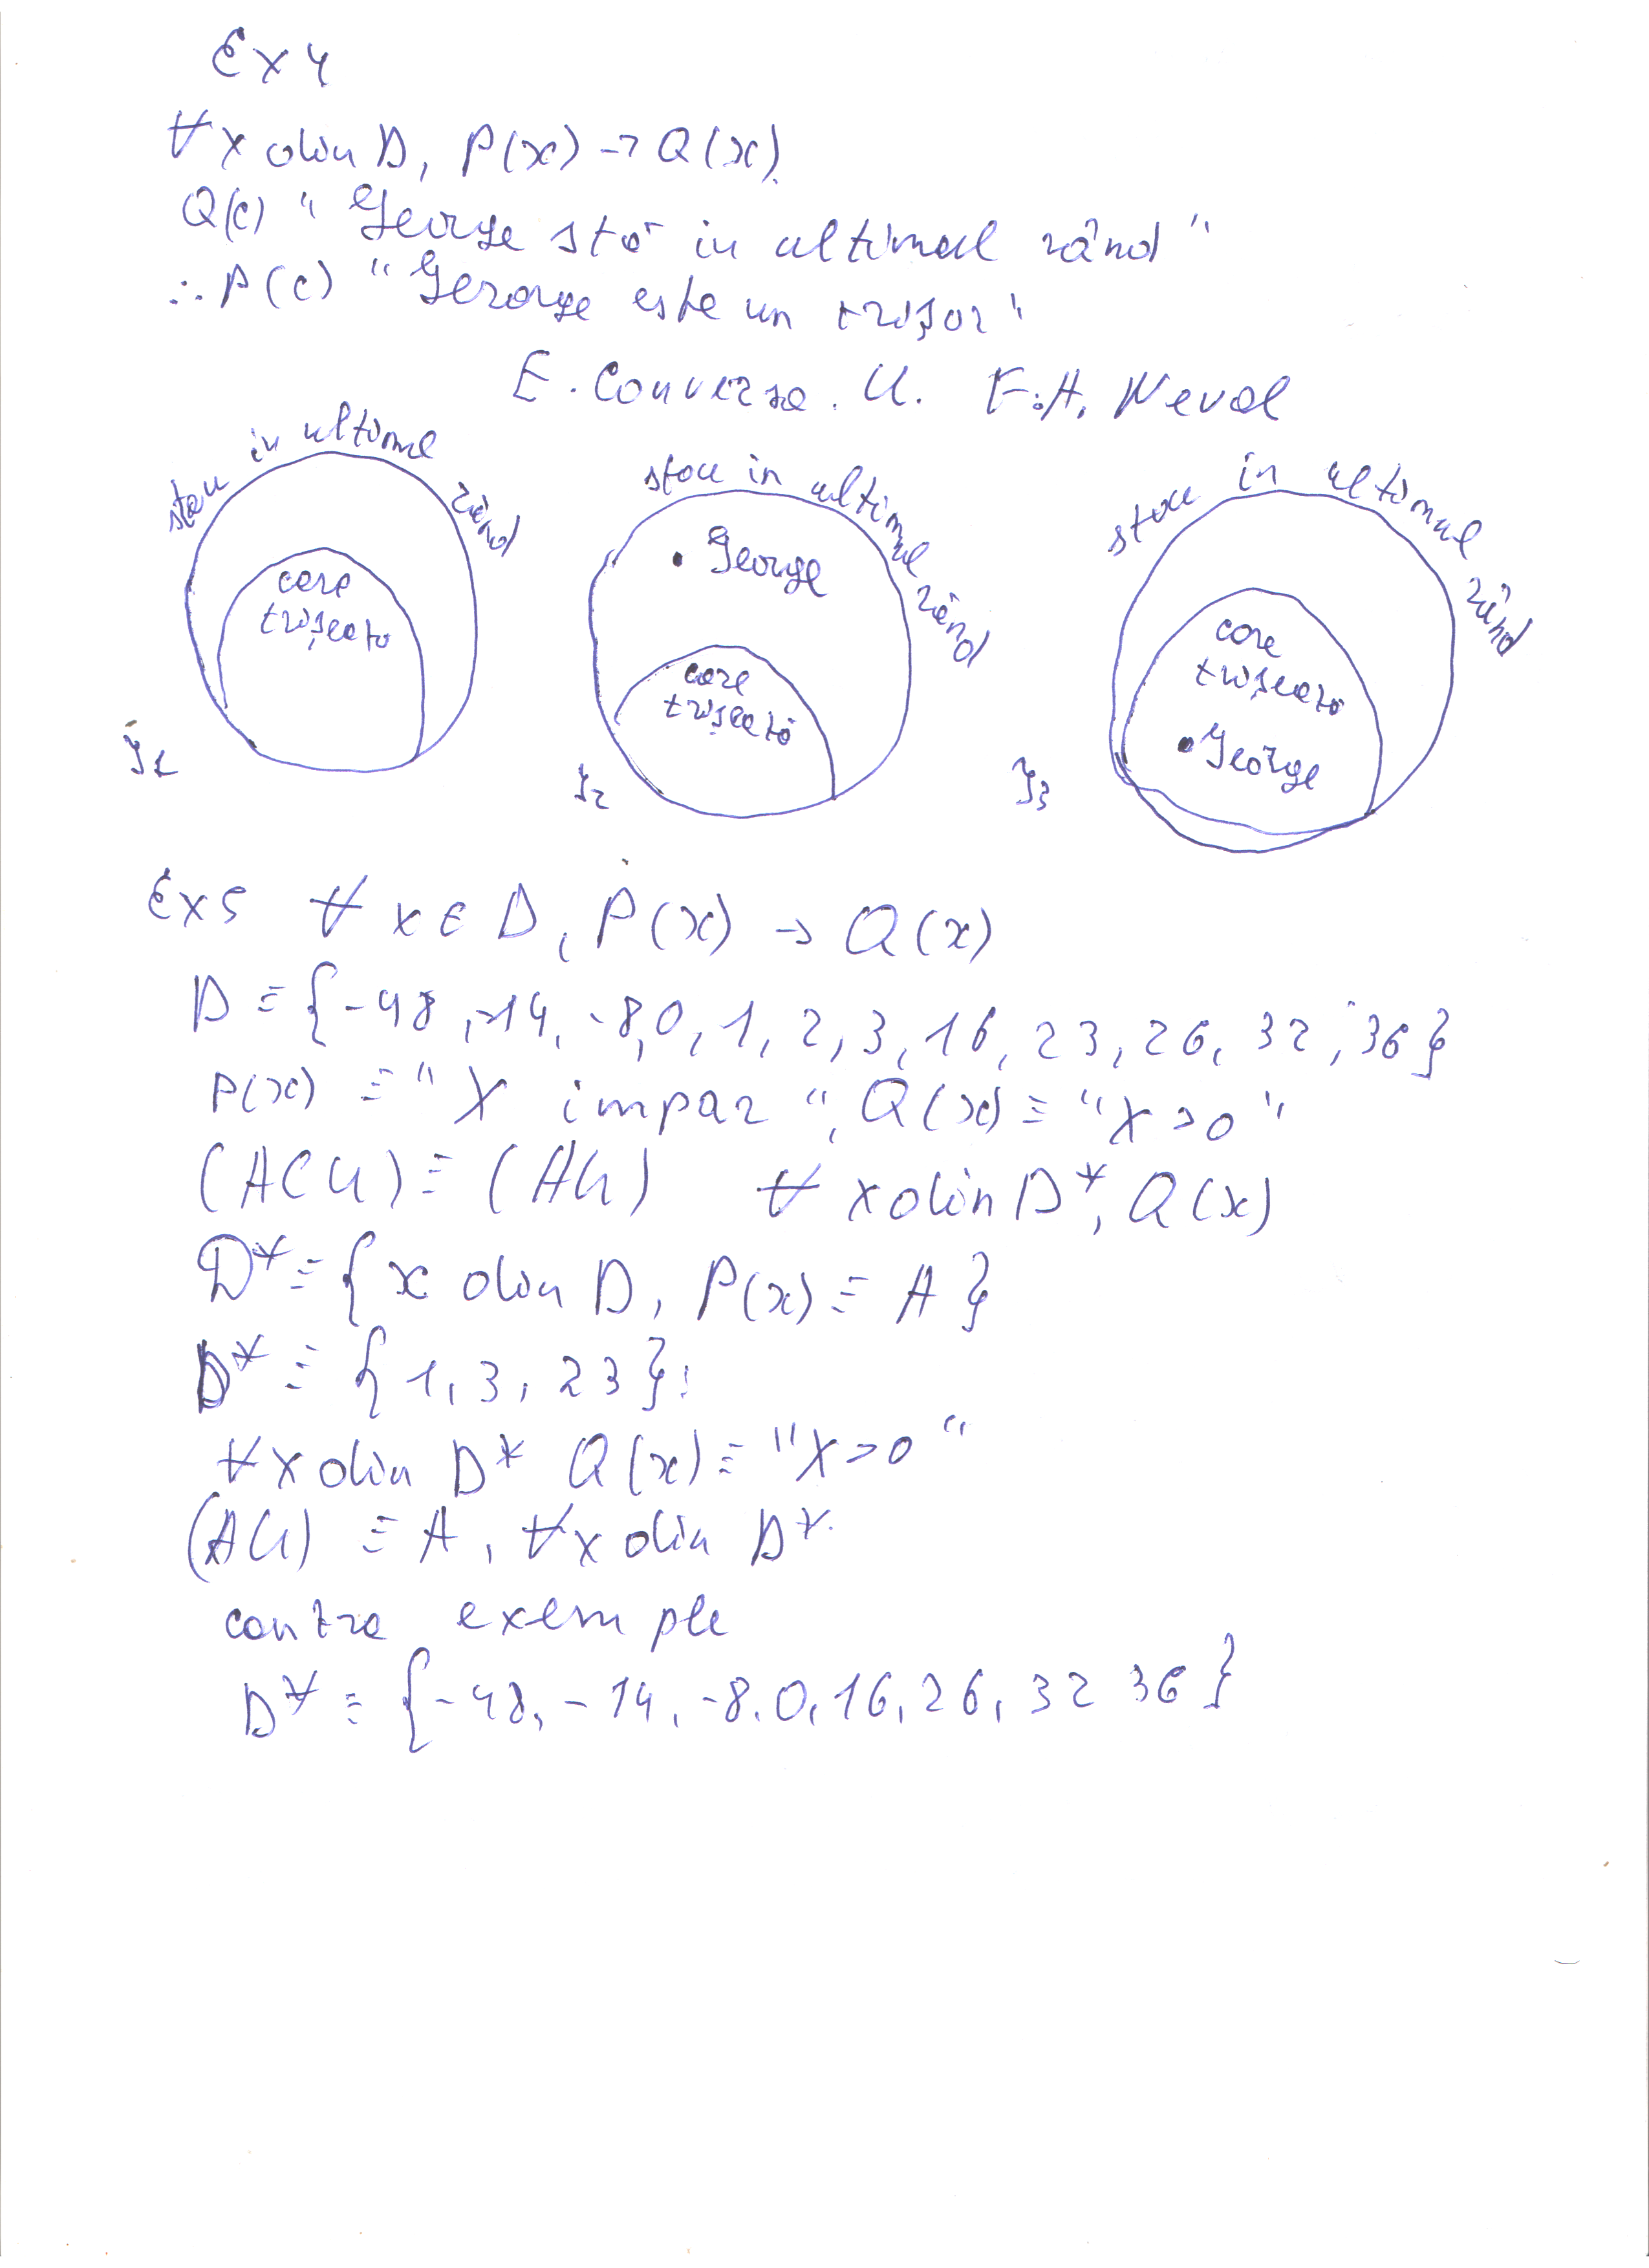 Ex 4
∀ x din D, P(x) → Q(x)
Q(c) " George stă in ultimul rând "
∴ P(c) " Gerorge este un trișor "
E. Converse. U. F.A. Neval
stau in ultimul rând
care trișează
J1
stau in ultimul rând
• George
care trișează
J2
stau in ultimul rând
care trișează
• George
J3
Ex 5 ∀ x ∈ D, P(x) → Q(x)
D ≡ {-48, -14, -8, 0, 1, 2, 3, 16, 23, 26, 32, 36}
P(x) ≡ " X impar ", Q(x) ≡ " X > 0 "
(ACU) ≡ (AU) ∀ x din D*, Q(x)
D* ≡ { x din D, P(x) ≡ A }
D* ≡ { 1, 3, 23 }:
∀ x din D* Q(x) ≡ " X > 0 "
(AU) ≡ A, ∀ x din D*
contra exemple
D* ≡ {-48, -14, -8. 0, 16, 26, 32 36 }